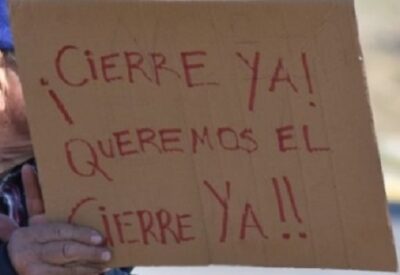 ¡CIERRE YA!
QUEREMOS EL
CIERRE YA!!